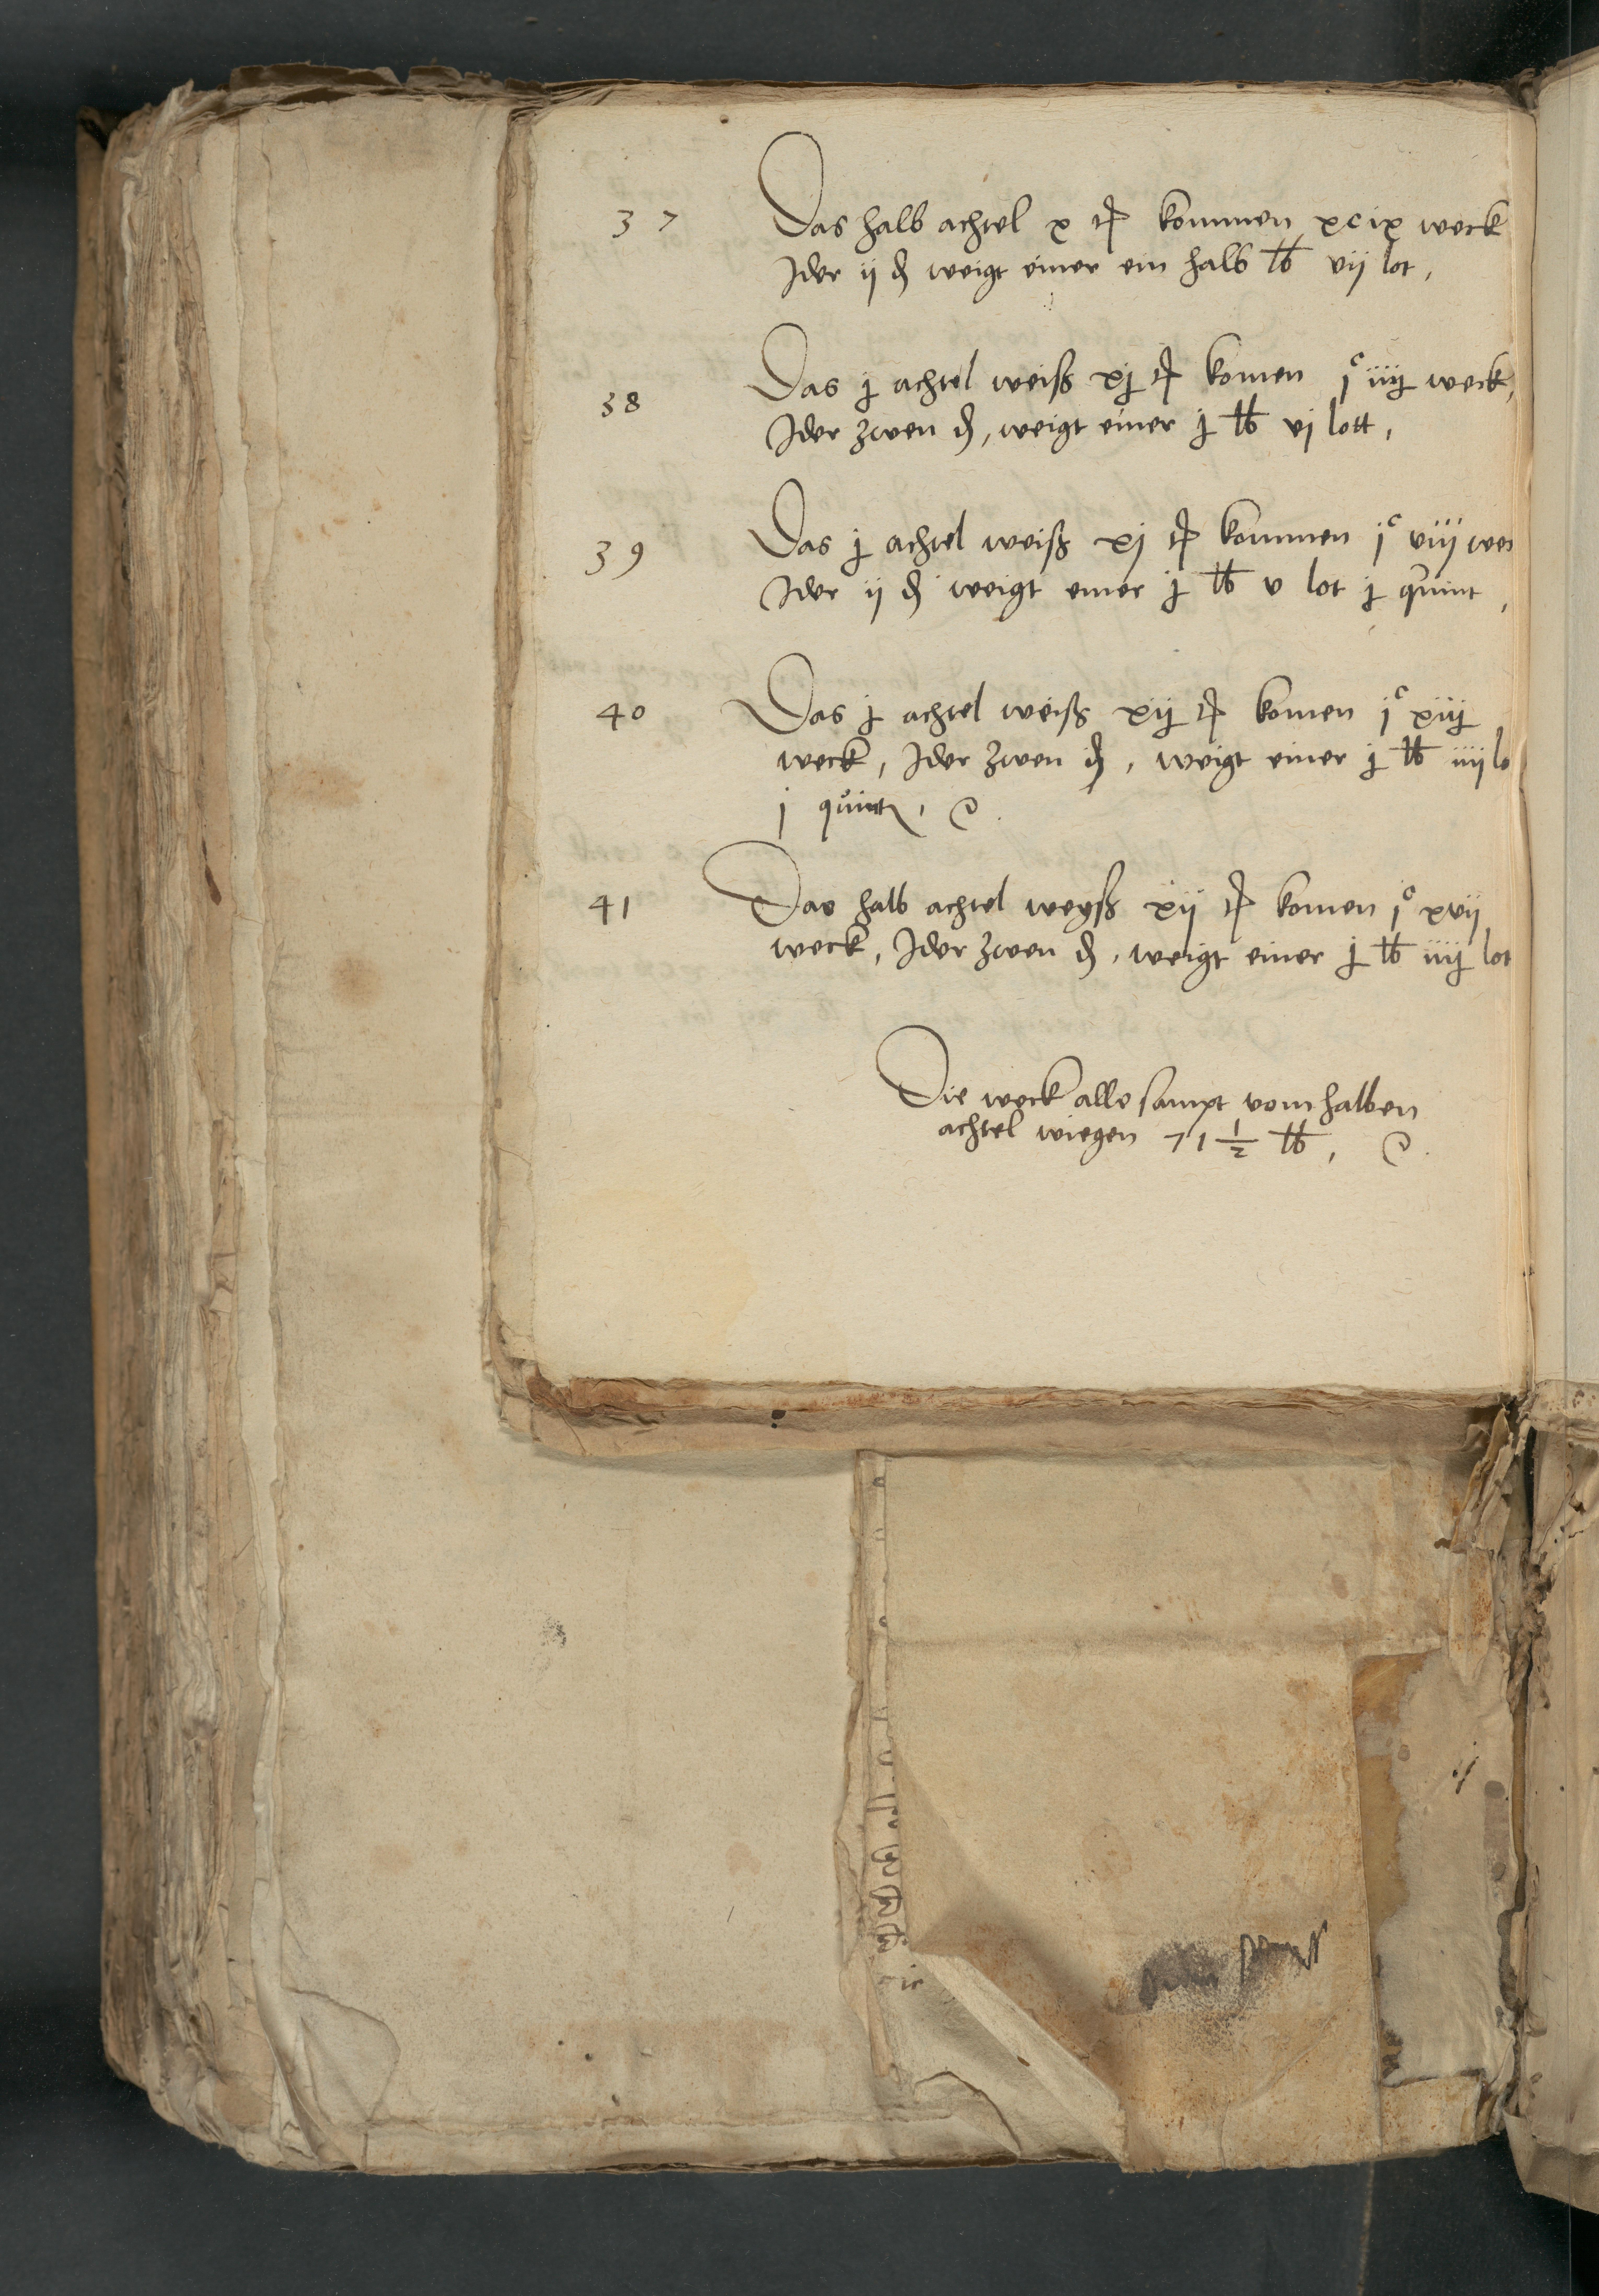 37 Das halb achtel x tꝭ kommen xcix weck
Jder ij ₰ weigt einer ein halb ℔ vij lot,
38 Das j achtel weiß xj tꝭ komen jᶜ iiij weck,
Jder zwen ₰, weigt einer j ℔ vj lott,
39 Das j achtel weiß xj tꝭ kommen jᶜ viij wec
Jder ij ₰ weigt einer j ℔ v lot j quint,
40 Das j achtel weiß xij tꝭ komen jᶜ xiij
weck, Jder zwen ₰, weigt einer j ℔ iiij lo
j quint,
41 Das halb achtel weyß xij tꝭ komen jᶜ xvij
weck, Jder zwen ₰, weigt einer j ℔ iiij lot
Die weck alle sampt vom halben
achtel wiegen 71 1/2 ℔,